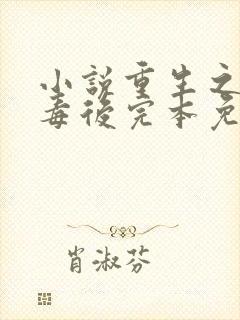 小说重生之
毒后完本免
肖淑芬